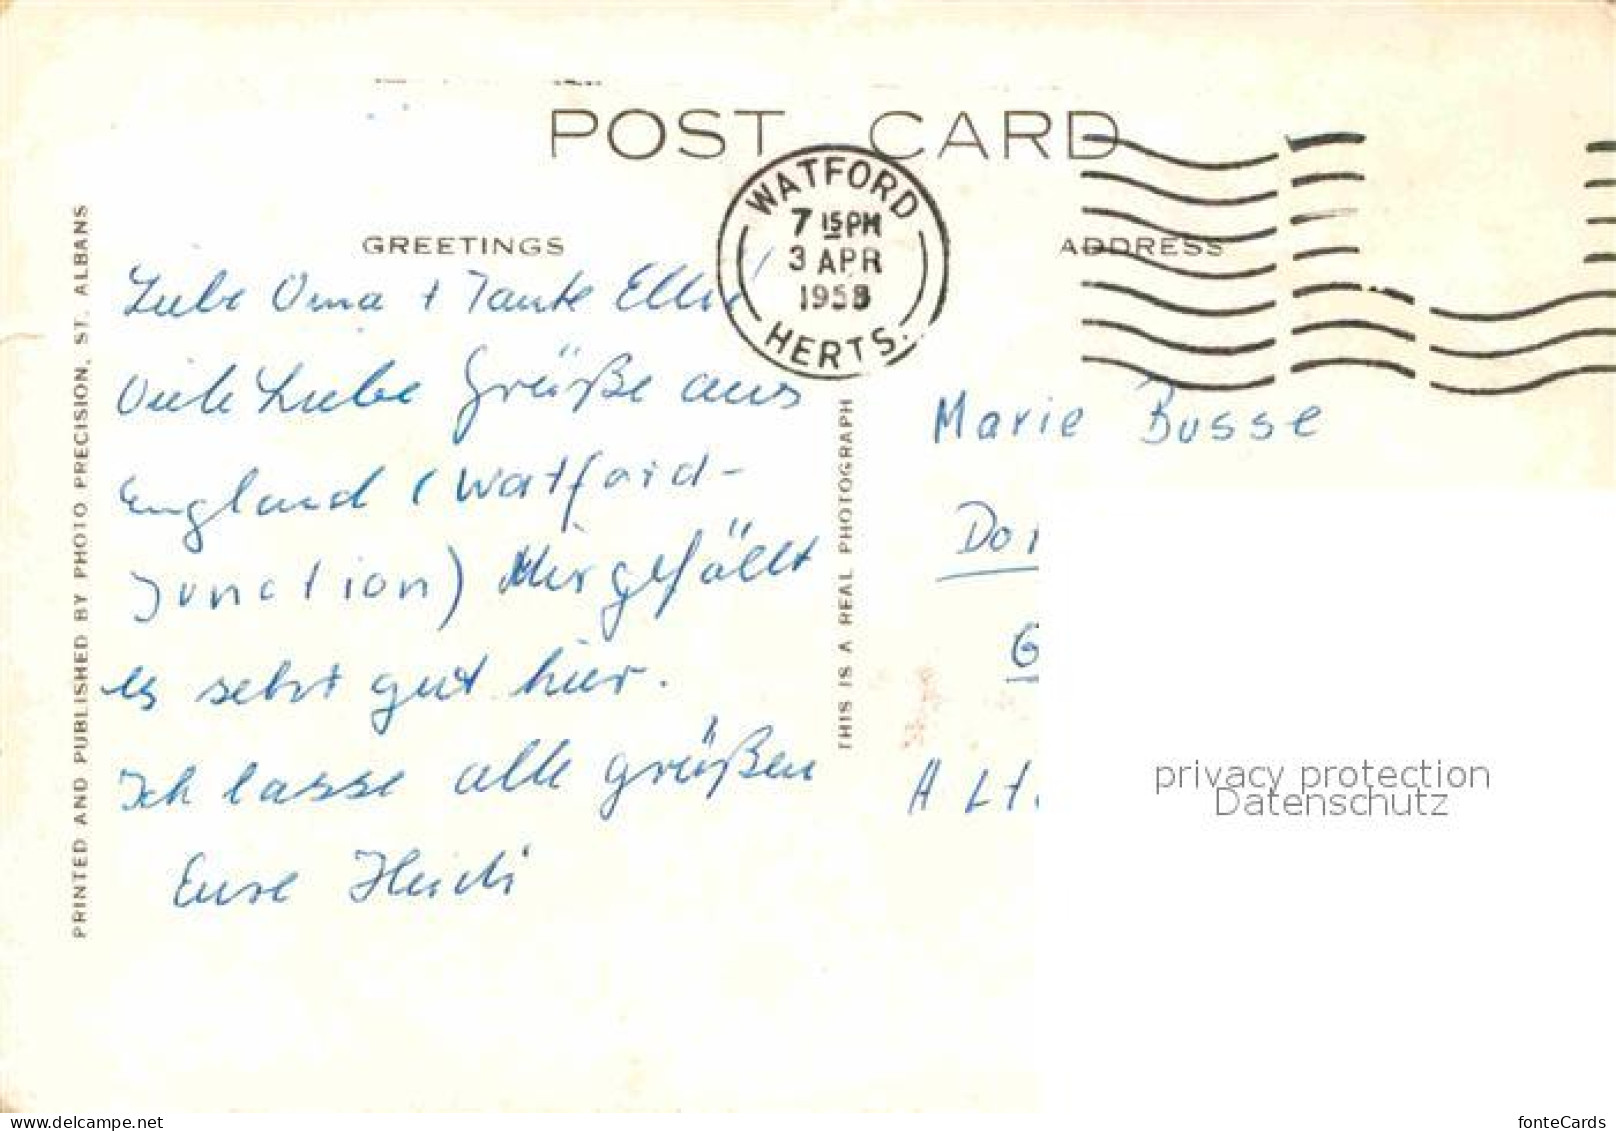 POST CARD
WATFORD
7 15 PM
3 APR
1958
HERTS.
GREETINGS
ADDRESS
Liebe Oma + Tante Elli
Viele Liebe Grüße aus
England (Watford-
Junction) Mir gefällt
es sehr gut hier.
Ich lasse alle grüßen
Eure Heidi
PRINTED AND PUBLISHED BY PHOTO PRECISION, ST. ALBANS
THIS IS A REAL PHOTOGRAPH
Marie Busse
privacy protection
Datenschutz
www.delcampe.net
fonteCards